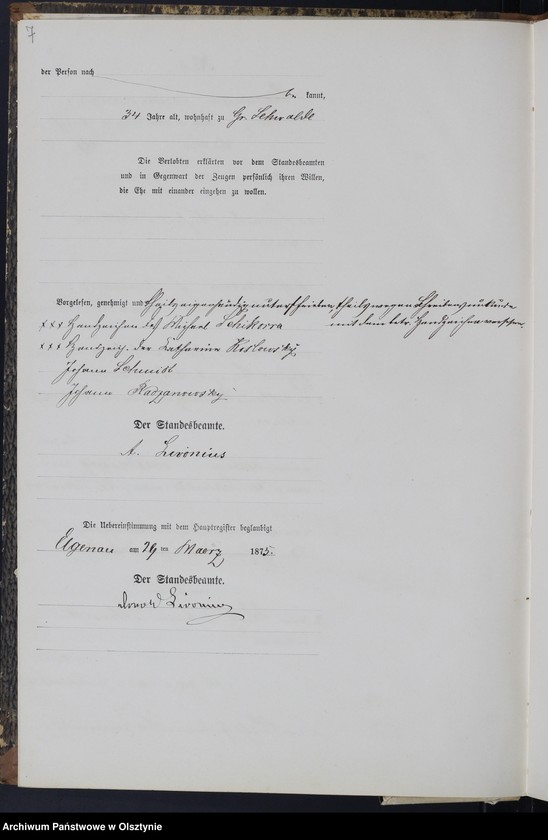 7
der Person nach
be kannt,
34 Jahre alt, wohnhaft zu Gr. Lehwalde
Die Verlobten erklärten vor dem Standesbeamten
und in Gegenwart der Zeugen persönlich ihren Willen,
die Ehe mit einander eingehen zu wollen.
Vorgelesen, genehmigt und theils eigenhändig unterschrieben, theils wegen Schreibensunkunde
mit dem Handzeichen versehen.
+++ Handzeichen des Michael Schikorra
+++ Handzeich. der Catharina Koslowsky
Johann Schmidt
Johann Radzanowsky
Der Standesbeamte.
A. Livonius
Die Uebereinstimmung mit dem Hauptregister beglaubigt
Elgenau am ten Maerz 1875.
Der Standesbeamte.
Livonius
Archiwum Państwowe w Olsztynie